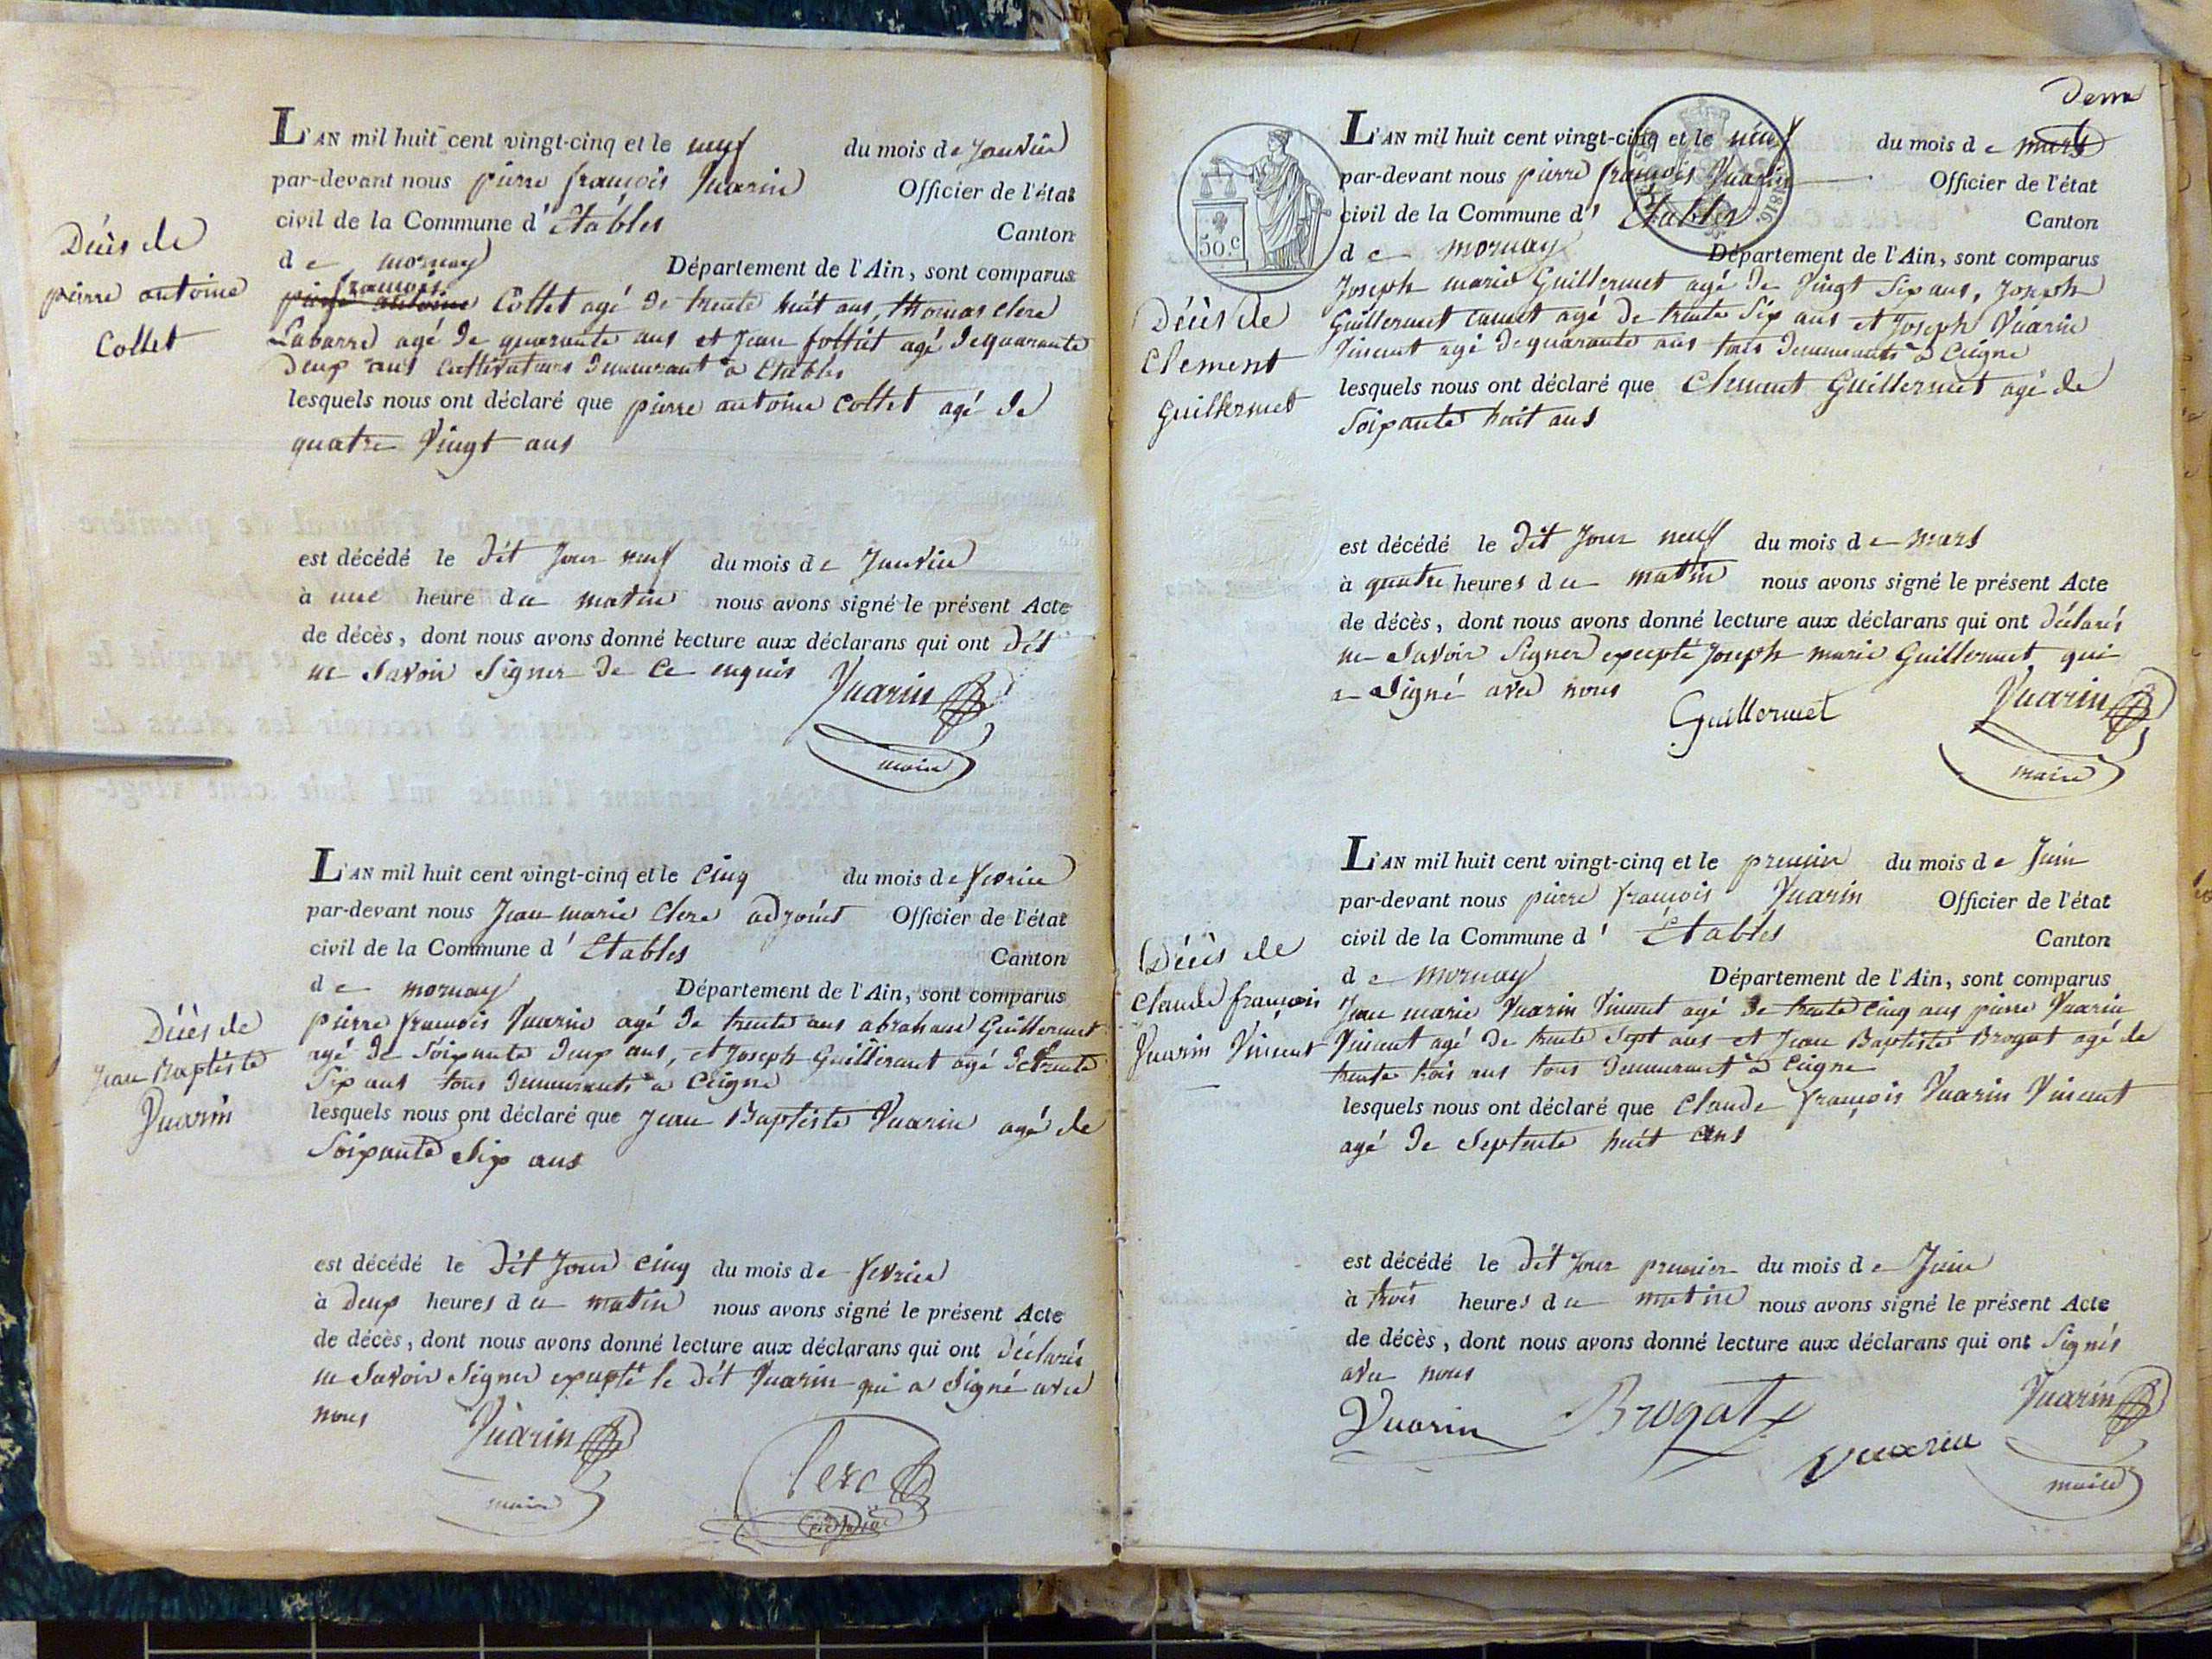 L'AN mil huit cent vingt-cinq et le neuf du mois de Janvier
par-devant nous pierre françois Vuarin Officier de l'état
civil de la Commune d' Etables Canton
de mornay Département de l'Ain, sont comparus
françois
pierre antoine Collet agé de trente huit ans, thomas clerc
Labarre agé de quarante ans et Jean follut agé de quarante
deux ans cultivateurs demeurant a Etables
lesquels nous ont déclaré que pierre antoine collet agé de
quatre Vingt ans
Décès de
pierre antoine
Collet
est décédé le dit Jour neuf du mois de Janvier
à une heure du matin nous avons signé le présent Acte
de décès, dont nous avons donné lecture aux déclarans qui ont dit
ne savoir signer de ce enquis Vuarin
maire
L'AN mil huit cent vingt-cinq et le cinq du mois de fevrier
par-devant nous Jean marie clerc adjoint Officier de l'état
civil de la Commune d' Etables Canton
de mornay Département de l'Ain, sont comparus
pierre françois Vuarin agé de trente ans abraham Guillermet
agé de soixante deux ans, et Joseph Guillermet agé de trente
six ans tous demeurants a Ceigne
lesquels nous ont déclaré que Jean Baptiste Vuarin agé de
soixante six ans
Décès de
Jean Baptiste
Vuarin
est décédé le dit Jour cinq du mois de fevrier
à deux heures du matin nous avons signé le présent Acte
de décès, dont nous avons donné lecture aux déclarans qui ont déclarés
ne savoir signer excepté le dit Vuarin qui a signé avec
nous
Vuarin Clerc
maire adjoint
L'AN mil huit cent vingt-cinq et le neuf du mois de mars
par-devant nous pierre françois Vuarin Officier de l'état
civil de la Commune d' Etables Canton
de mornay Département de l'Ain, sont comparus
50.c
1816
Joseph marie Guillermet agé de Vingt six ans, Joseph
Guillermet agé de trente six ans et Joseph Vuarin
Vincent agé de quarante ans tous demeurants a Ceigne
lesquels nous ont déclaré que Clement Guillermet agé de
soixante huit ans
Décès de
Clement
Guillermet
est décédé le dit Jour neuf du mois de mars
à quatre heures du matin nous avons signé le présent Acte
de décès, dont nous avons donné lecture aux déclarans qui ont déclarés
ne savoir signer excepté Joseph marie Guillermet qui
a signé avec nous
Guillermet Vuarin
maire
L'AN mil huit cent vingt-cinq et le premier du mois de Juin
par-devant nous pierre françois Vuarin Officier de l'état
civil de la Commune d' Etables Canton
de mornay Département de l'Ain, sont comparus
Jean marie Vuarin Vincent agé de trente cinq ans pierre Vuarin
Vincent agé de trente sept ans et Jean Baptiste Brogat agé de
trente trois ans tous demeurant a Ceigne
lesquels nous ont déclaré que Claude françois Vuarin Vincent
agé de septente huit ans
Décès de
Claude françois
Vuarin Vincent
est décédé le dit Jour premier du mois de Juin
à trois heures du matin nous avons signé le présent Acte
de décès, dont nous avons donné lecture aux déclarans qui ont signés
avec nous
Vuarin Brogat Vuarin Vuarin
maire